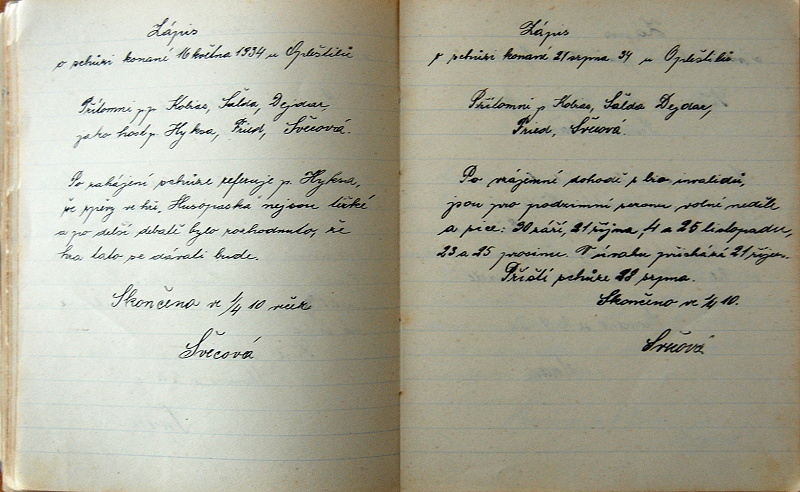 Zápis
o schůzi konané 16 května 1934 u Opleštilů
Přítomni pp Kobes, Šalda, Dejdar,
jako host p. Hyksa, Fried, Švecová.
Po zahájení schůze referuje p. Hyksa,
že zpěvy ve hře, Husopaská nejsou těžké
a po delší debatě bylo rozhodnuto, že
hra tato se dávati bude.
Skončeno ve 1/4 10 več.
Švecová
Zápis
o schůzi konané 21 srpna 34 u Opleštilů
Přítomni p. Kobes, Šalda Dejdar,
Fried, Švecová.
Po vzájemné dohodě s bio invalidů,
jsou pro podzimní sezonu volné neděle
a sice: 30 září, 21 října, 4 a 25 listopadu,
23 a 25 prosince. V úvahu přichází 21 říjen.
Příští schůze 28 srpna.
Skončeno ve 1/4 10.
Švecová